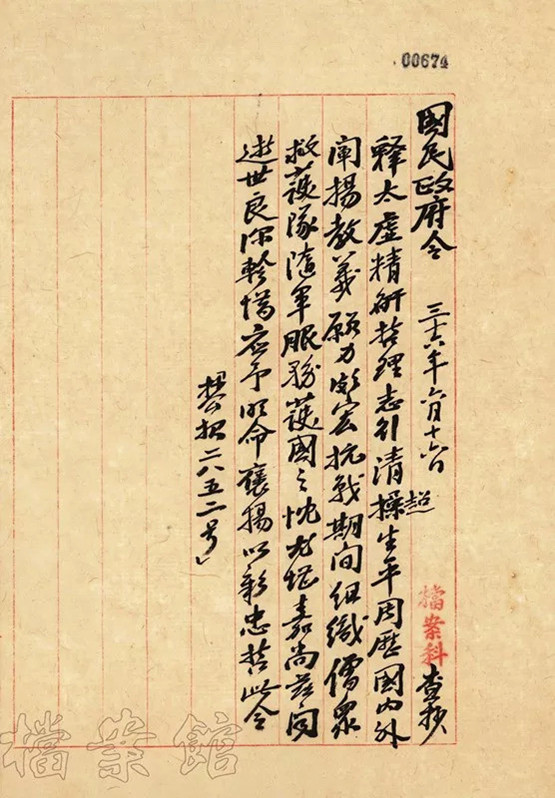 00674
國民政府令 三十六年六月十六日 檔案科 查抄
釋太虛精研哲理志行清操生平周歷國內外
超
闡揚教義願力頗宏抗戰期間組織僧眾
救護隊隨軍服務護國之忱尤堪嘉尚茲聞
逝世良深軫惜應予明命褒揚以彰忠哲此令
二八五二号」
檔案館